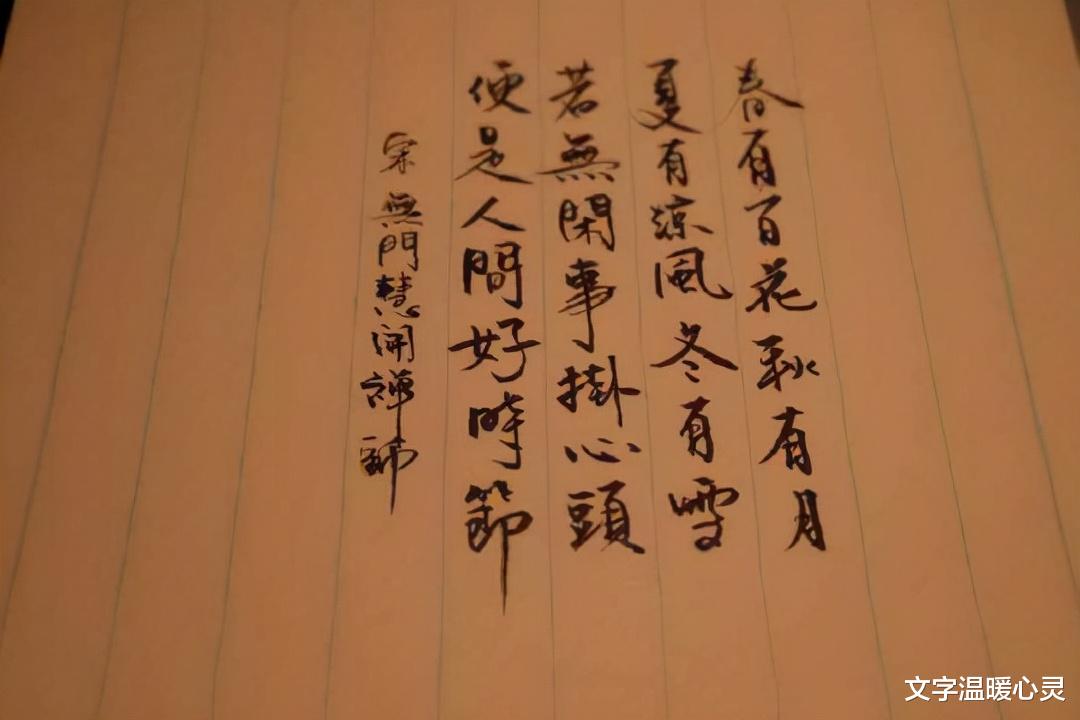 春有百花秋有月
夏有涼風冬有雪
若無閑事掛心頭
便是人間好時節
宋無門慧開禪師
文字温暖心灵